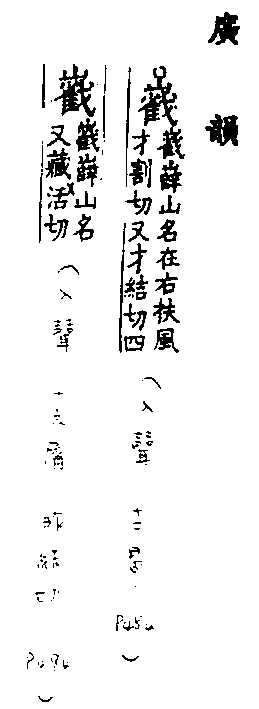 廣韻
巀巀嶭山名在右扶風
才割切又才結切四
(入聲 十二曷 P484)
巀巀嶭山名
又藏活切
(入聲 十六屑 昨結切 P494)